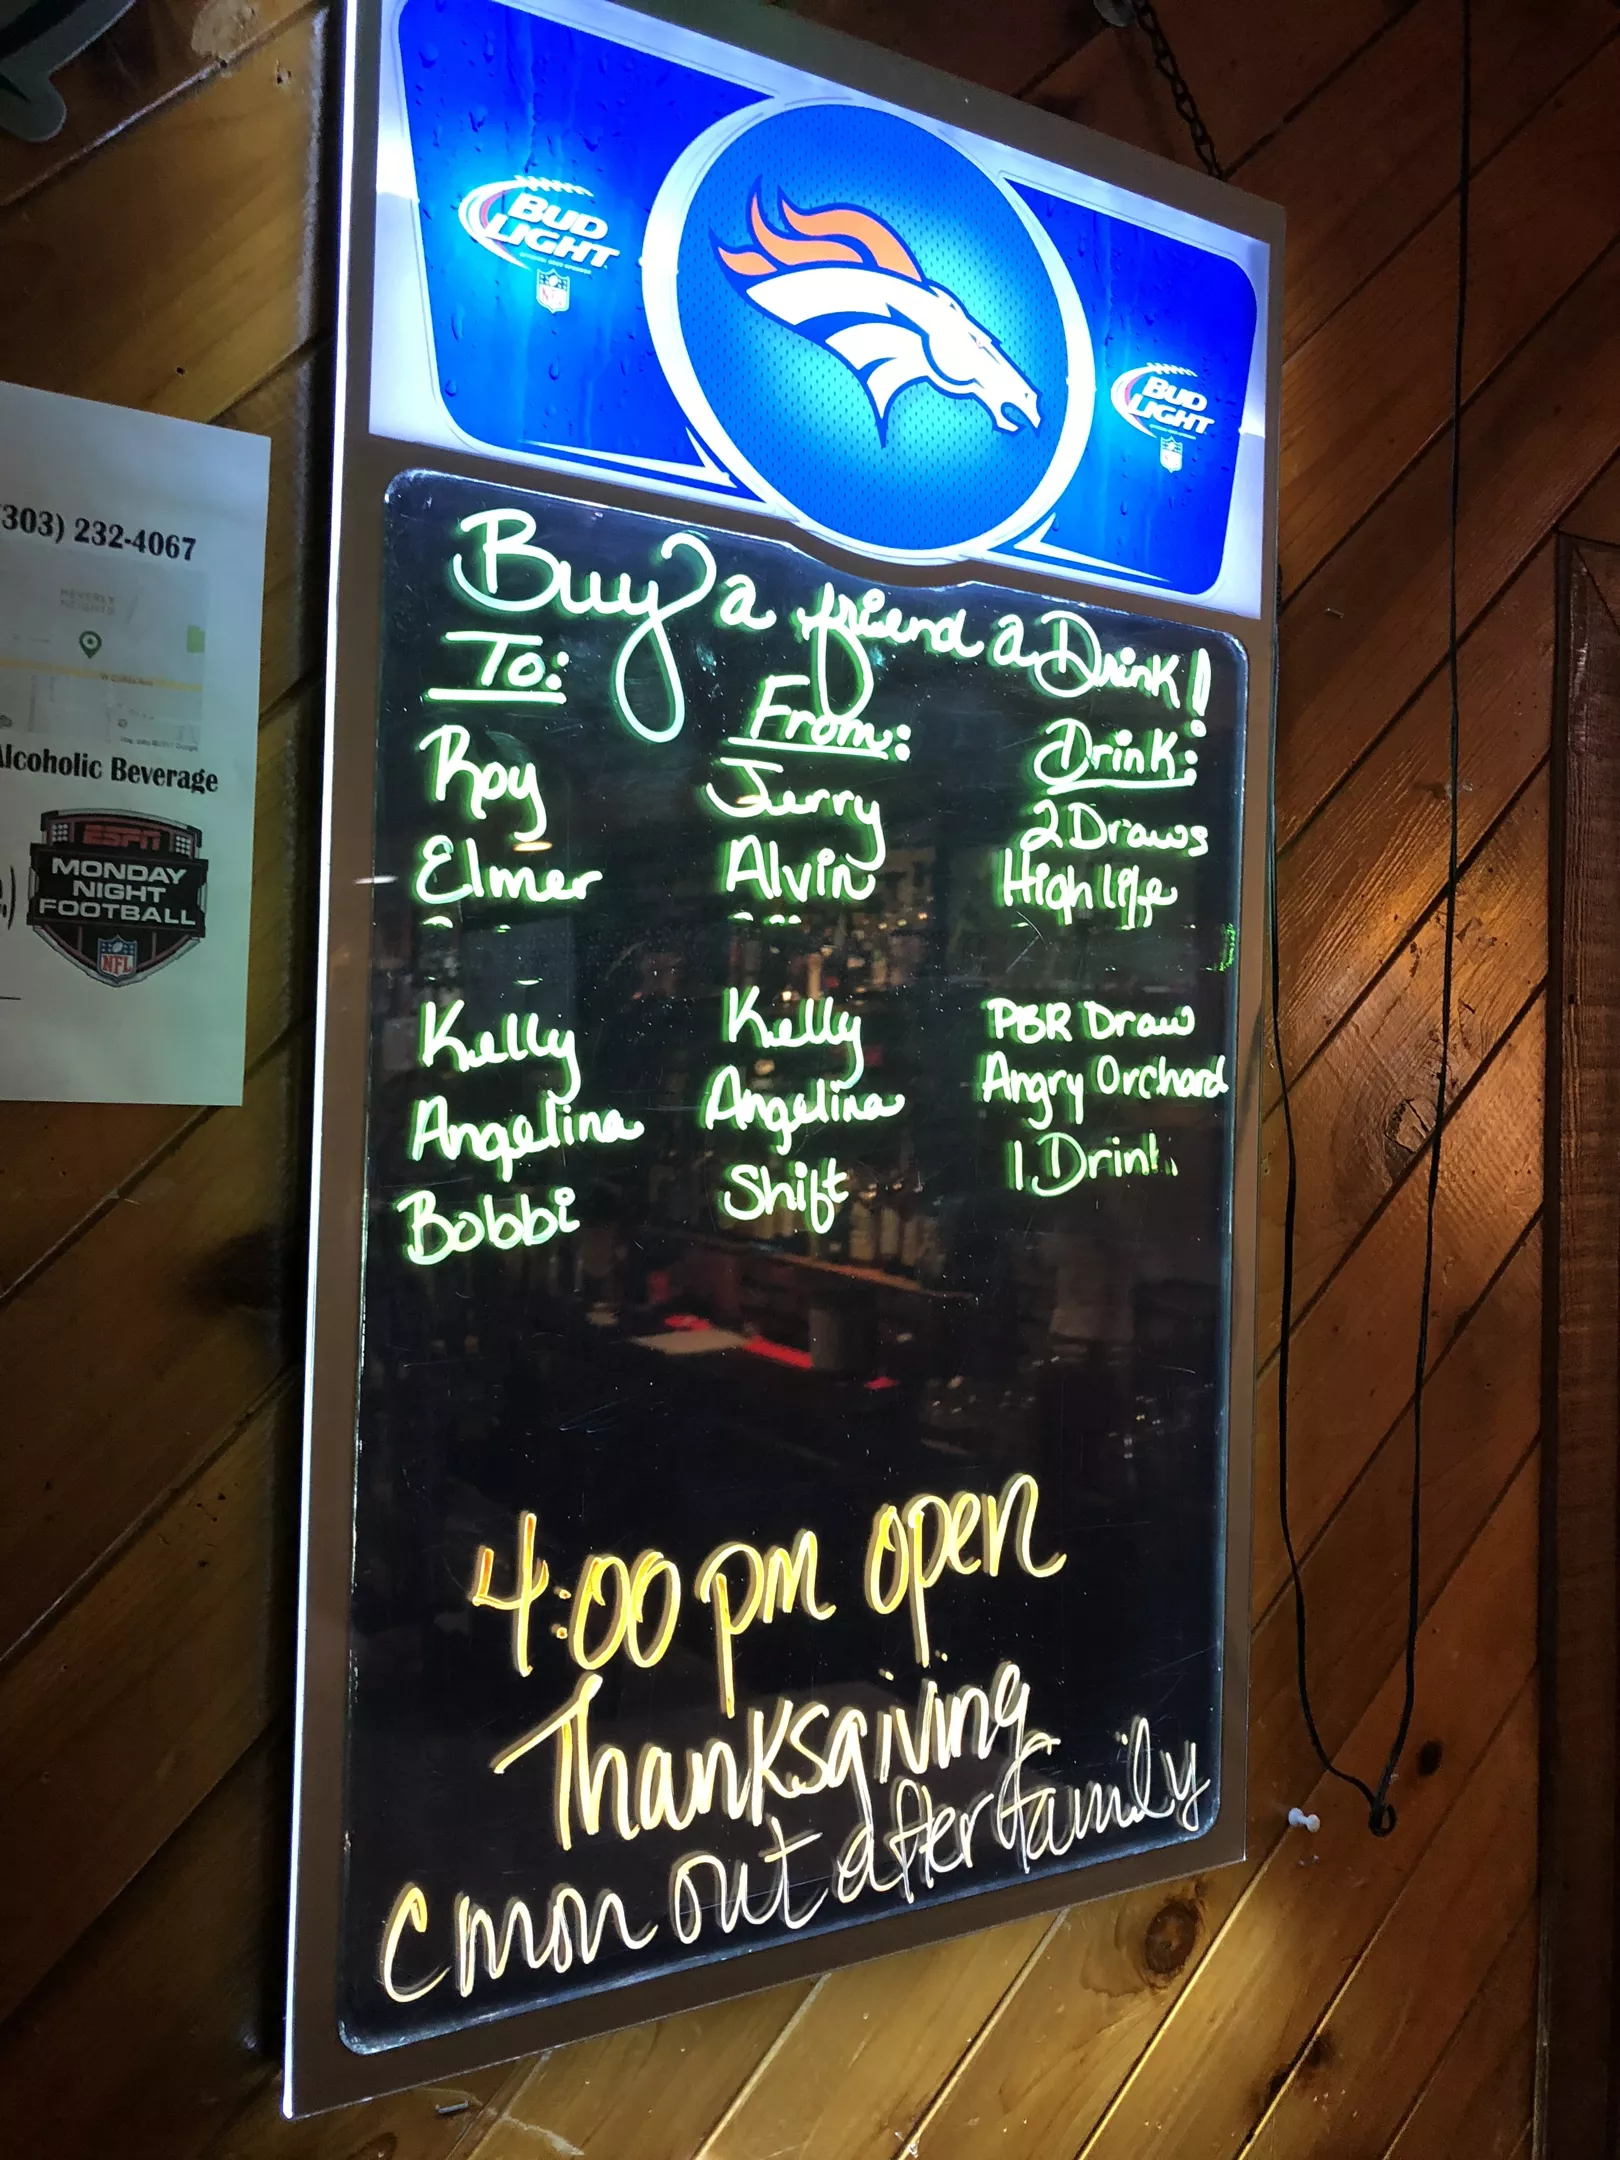 BUD
LIGHT
NFL
BUD
LIGHT
NFL
303) 232-4067
BEVERLY
HEIGHTS
Alcoholic Beverage
ESPN
MONDAY
NIGHT
FOOTBALL
NFL
Buy a friend a Drink!
To: From: Drink:
Roy Jerry 2 Draws
Elmer Alvin High life
Kelly Kelly PBR Draw
Angelina Angelina Angry Orchard
Bobbi Shift 1 Drink
4:00 pm open
Thanksgiving
cmon out after family